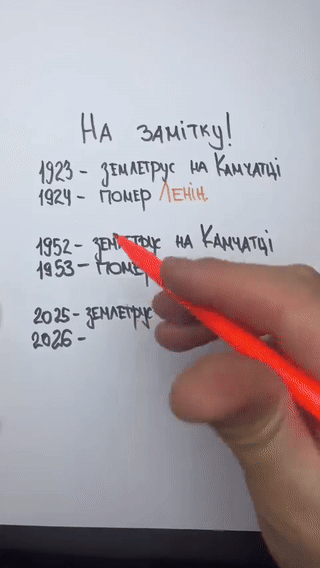 На замітку!
1923 - землетрус на Камчатці
1924 - помер Ленін
1952 - землетрус на Камчатці
1953 - помер
2025 - землетрус
2026 -